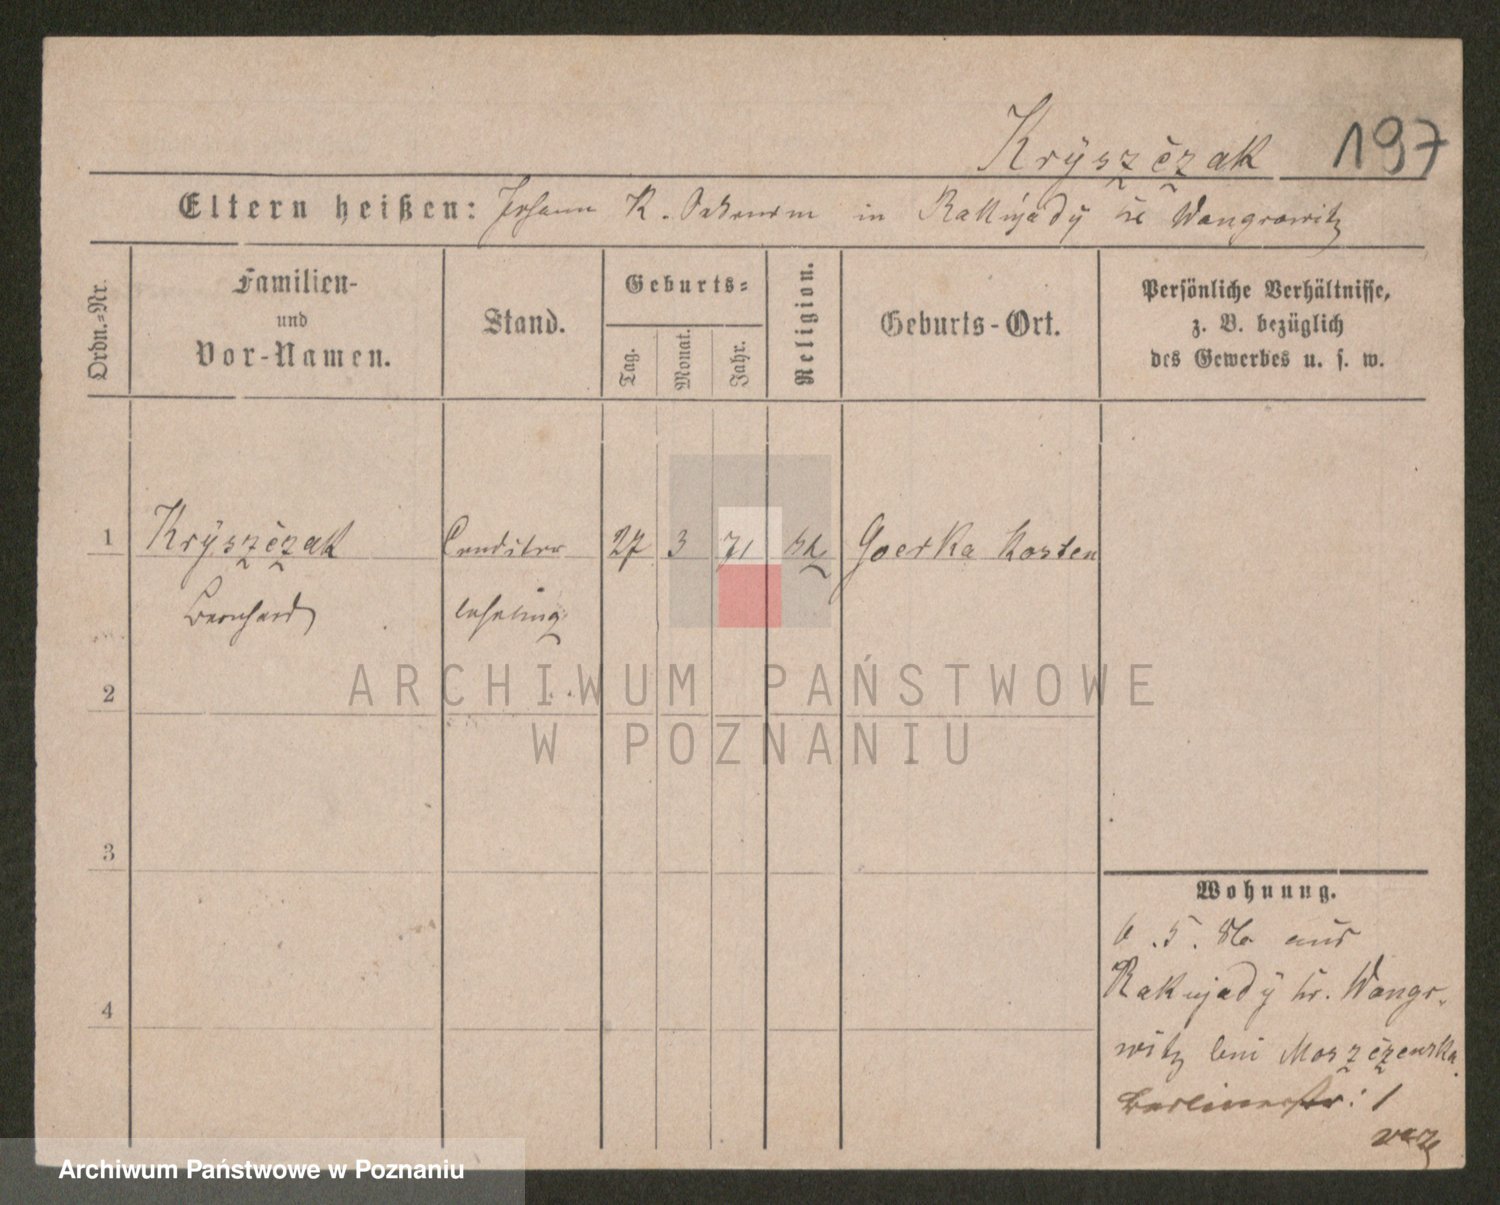 Kryszczak 197
Eltern heißen: Johann K. Oekonom in Rakujady Kr Wongrowitz
Ordn.=Nr.
Familien-
und
Vor-Namen.
Stand.
Geburts=
Tag.
Monat.
Jahr.
Religion.
Geburts-Ort.
Persönliche Verhältnisse,
z. B. bezüglich
des Gewerbes u. s. w.
1 Kryszczak Conditor 27 3 71 kh Goerka Kosten
Bernhard lehrling
2
ARCHIWUM PAŃSTWOWE
W POZNANIU
3
Wohnung.
6.5.86 aus
4
Rakujady Kr. Wongr-
witz bei Moszczenska
Berlinerstr: 1
verz
Archiwum Państwowe w Poznaniu